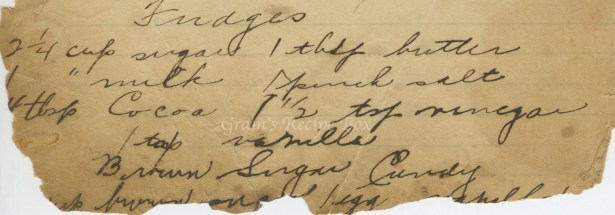 Fudges
2 1/4 cup sugar 1 tbsp butter
1 " milk 1 pinch salt
4 tbsp Cocoa 1 1/2 tsp vinegar
Gram's Recipe Box
1 tsp vanilla
Brown Sugar Candy
brown 1 egg